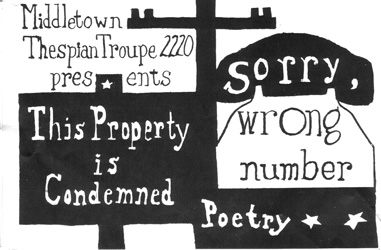 Middletown
Thespian Troupe 2220
presents
This Property
is
Condemned
Sorry,
wrong
number
Poetry